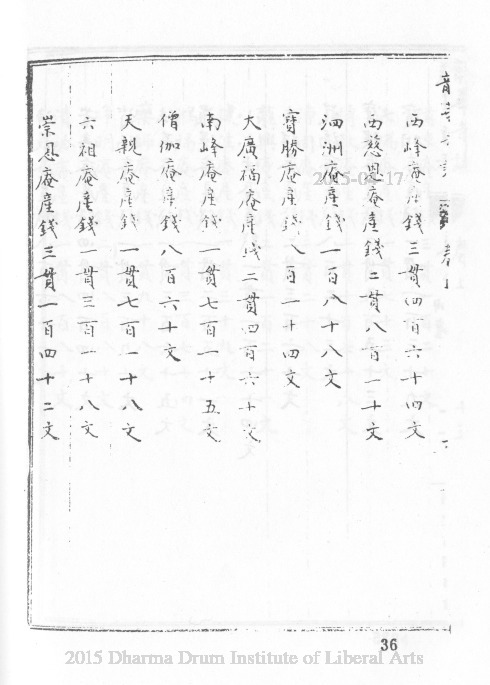 西峰庵產錢三貫四百六十四文
西慈恩庵產錢二貫八百二十文
泗洲庵產錢一百八十八文
寶勝庵產錢八百一十四文
大廣福庵產錢二貫四百六十文
南峰庵產錢一貫七百一十五文
僧伽庵產錢八百六十文
天親庵產錢一貫七百一十八文
六祖庵產錢一貫三百一十八文
崇恩庵產錢三貫一百四十二文
36
2015-04-17
2015 Dharma Drum Institute of Liberal Arts